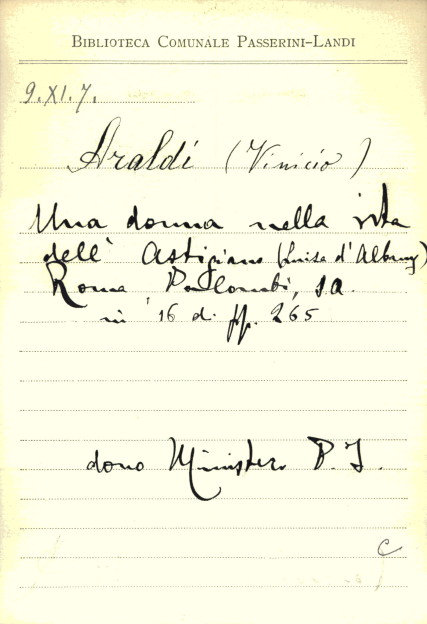 BIBLIOTECA COMUNALE PASSERINI-LANDI
9.XI.7.
Araldi (Vinicio)
Una donna nella vita
dell' Astigiano (Luisa d'Albany)
Roma, Palombi, s.a.
in 16 d. pp. 265
dono Ministero P.I.
C